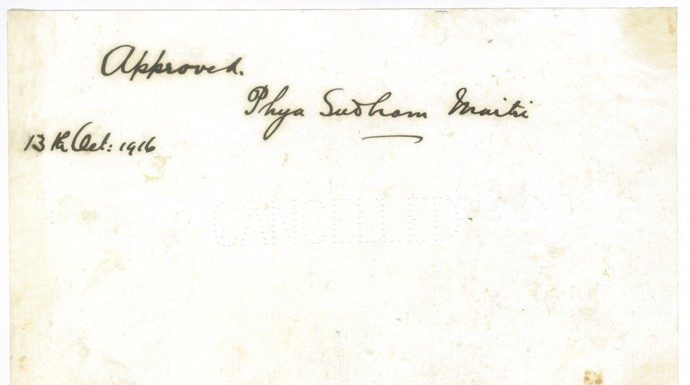 Approved.
Phya Sudham Maitri
13th Oct: 1916
CANCELLED